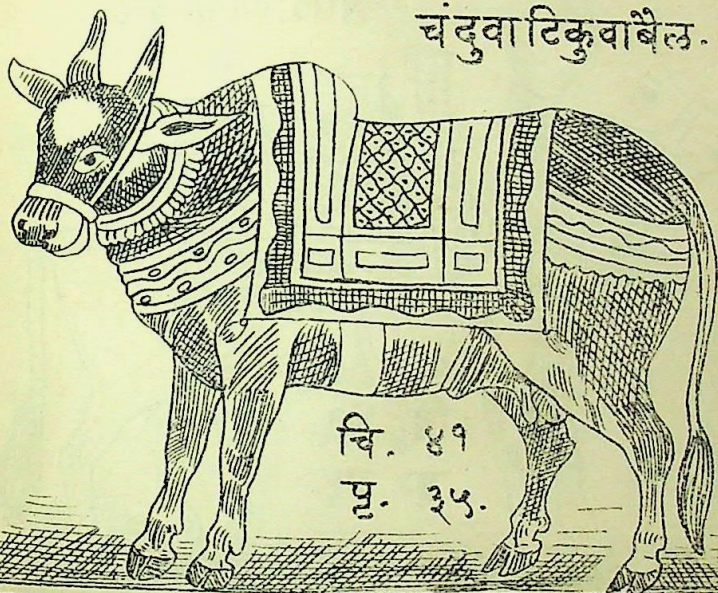 चंदुवा टिकुवा बैल.
चि. ४१
पृ. ३५.